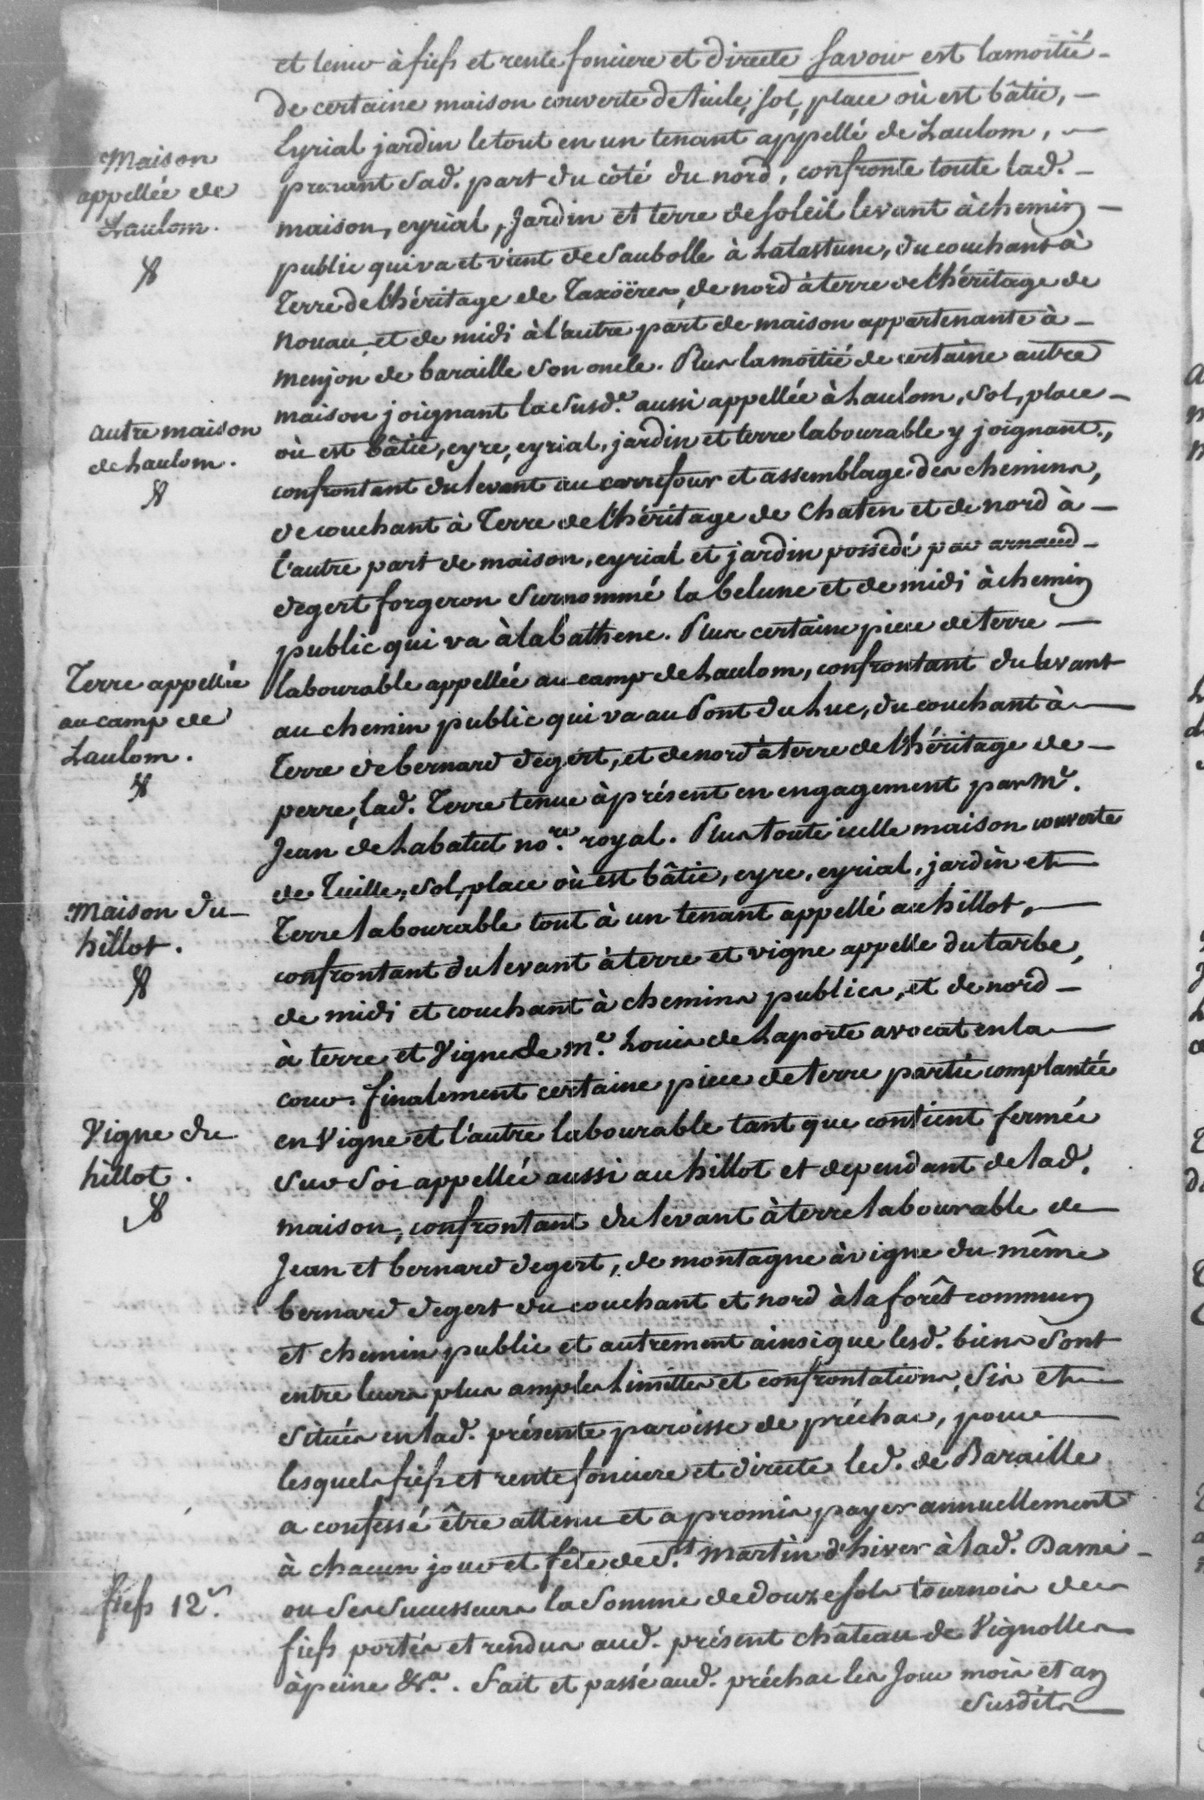 et tenu à fiefs et rente fonciere et directe savoir est lamoitié
de certaine maison couverte de tuile, sol, place où est bâtie,
Eyrial jardin le tout en un tenant appellé de Laulom,
Maison
appellée de
Laulom.
prenant sad. part du côté du nord, confronte toute lad.
maison, eyrial, jardin et terre de soleil levant à chemin
public qui va et vient de Saubolle à Latastune, du couchant à
Terre de l'héritage de Taxöëres, de nord à terre de l'héritage de
nouau, et de midi à l'autre part de maison appartenante à
menjon de baraille son oncle. Plus lamoitié de certaine autre
maison joignant la susd.e aussi appellée à Laulom, sol, place
autre maison
de Laulom.
où est bâtie, eyre, eyrial, jardin et terre labourable y joignant,
confrontant du levant au carrefour et assemblage des chemins,
de couchant à Terre de l'héritage de Chaten et de nord à
l'autre part de maison, eyrial et jardin possedé par arnaud
degert forgeron surnommé la belune et de midi à chemin
public qui va à labathene. Plus certaine piece de terre
Terre appellée
au camp de
Laulom.
labourable appellée au camp de Laulom, confrontant du levant
au chemin public qui va au Pont du Luc, du couchant à
Terre de bernard degert, et de nord à terre de l'héritage de
perre, lad. Terre tenue à présent en engagement par M.e
Jean de Labatut no.re royal. Plus toute icelle maison couverte
de Tuille, sol, place où est bâtie, eyre, eyrial, jardin et
Maison du
hillot.
Terre labourable tout à un tenant appellé au hillot,
confrontant du levant à terre et vigne appelle du tarbe,
de midi et couchant à chemins publics, et de nord
à terre et Vigne de m.e Louis de Laporte avocat en la
cour. finalement certaine piece de terre partie complantée
Vigne du
hillot.
en Vigne et l'autre labourable tant que contient fermée
sur soi appellée aussi au hillot et dependant de lad.
maison, confrontant du levant à terre labourable de
Jean et bernard degert, de montagne à vigne du même
bernard degert du couchant et nord à la forêt commun
et chemin public et autrement ainsi que lesd. biens sont
entre leurs plus amples limittes et confrontations, sis et
situés en lad. présente paroisse de préchac, pour
lesquels fiefs et rente fonciere et directe led. de Baraille
a confessé être attenu et a promis payer annuellement
à chacun jour et fête de S.t Martin d'hiver à lad. Dame
fiefs 12s.
ou ses successeurs la somme de douze sols tournois de
fiefs portés et rendus aud. présent château de Vignolles
à peine &.a. Fait et passé aud. préchac les Jour mois et an
susdits